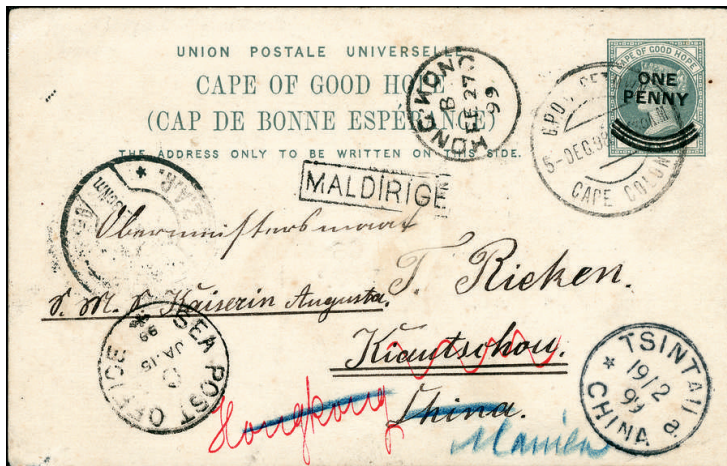 UNION POSTALE UNIVERSELLE
CAPE OF GOOD HOPE
CAPE OF GOOD HOPE
(CAP DE BONNE ESPÉRANCE)
THE ADDRESS ONLY TO BE WRITTEN ON THIS SIDE.
ONE
PENNY
HONG-KONG
B
FE 27
99
G.P.O.
5-DEC.98
CAPE COLON
MALDIRIGE
Obermeistersmaat
T. Rieken.
S. M. S. Kaiserin Augusta
Kiautschou.
Hongkong
China.
Manila
SEA POST OFFICE
C
JA.15
99
TSINTAU a
19/2
99
CHINA